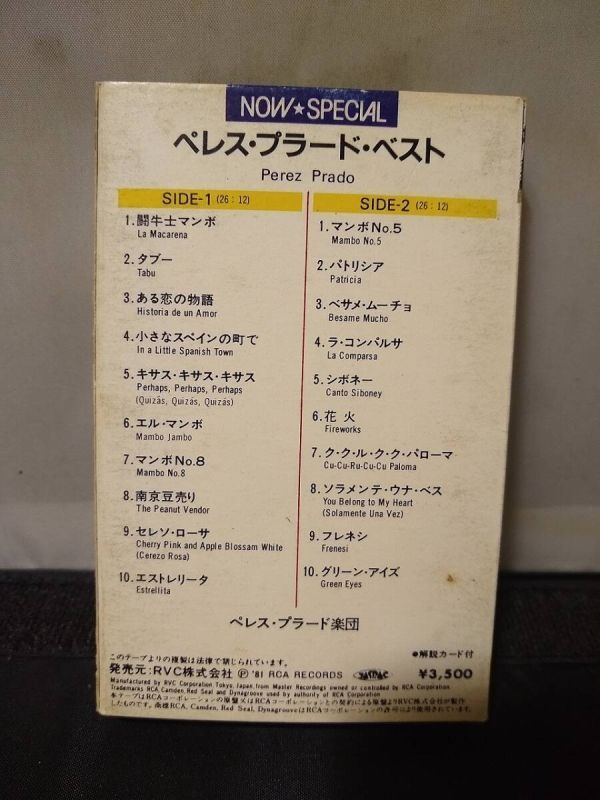 NOW★SPECIAL
ペレス・プラード・ベスト
Perez Prado
SIDE-1 (26:12)
1.闘牛士マンボ
La Macarena
2.タブー
Tabu
3.ある恋の物語
Historia de un Amor
4.小さなスペインの町で
In a Little Spanish Town
5.キサス・キサス・キサス
Perhaps, Perhaps, Perhaps
(Quizás, Quizás, Quizás)
6.エル・マンボ
Mambo Jambo
7.マンボNo.8
Mambo No.8
8.南京豆売り
The Peanut Vendor
9.セレソ・ローサ
Cherry Pink and Apple Blossam White
(Cerezo Rosa)
10.エストレリータ
Estrellita
SIDE-2 (26:12)
1.マンボNo.5
Mambo No.5
2.パトリシア
Patricia
3.ベサメ・ムーチョ
Besame Mucho
4.ラ・コンパルサ
La Comparsa
5.シボネー
Canto Siboney
6.花火
Fireworks
7.ク・ク・ル・ク・ク・パローマ
Cu-Cu-Ru-Cu-Cu Paloma
8.ソラメンテ・ウナ・ベス
You Belong to My Heart
(Solamente Una Vez)
9.フレネシ
Frenesi
10.グリーン・アイズ
Green Eyes
ペレス・プラード楽団
●解説カード付
このテープよりの複製は法律で禁じられています。
発売元:RVC株式会社 Ⓟ'81 RCA RECORDS
¥3,500
Manufactured by RVC Corporation, Tokyo, Japan, from Master Recordings owned or controlled by RCA Corporation
Trademarks RCA, Camden, Red Seal and Dynagroove used by authority of RCA Corporation
本テープはRCAコーポレーションの原盤又はRCAコーポレーションとの契約による原盤よりRVC株式会社が製作
したものです。商標RCA, Camden, Red Seal, DynagrooveはRCAコーポレーションの許可により使用されています。